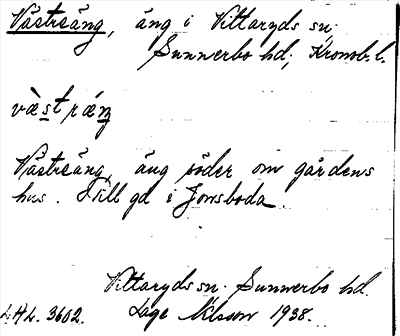 Västräng, äng i Vittaryds sn.
Sunnerbo hd; Kronob. l.
væ̀strǽŋ
Västräng, äng söder om gårdens
hus. Till gd i Jonsboda.
Vittaryds sn. Sunnerbo hd.
L.H.L. 3602. Åge 1938.